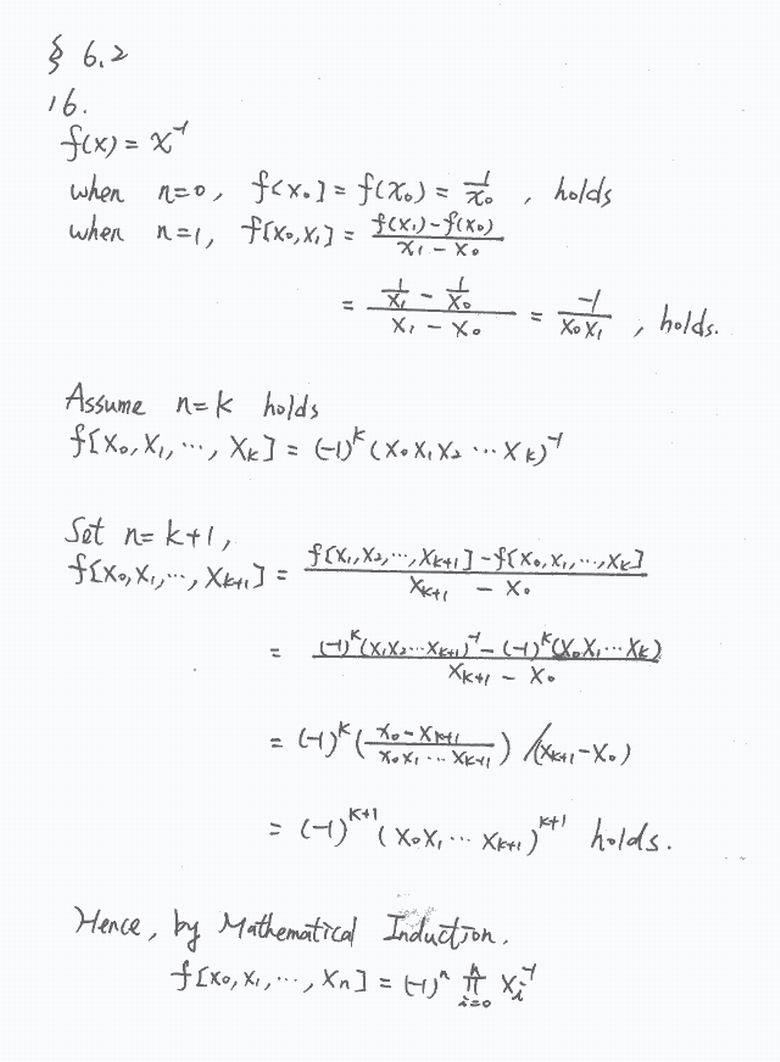 § 6.2
16.
f(x) = x⁻¹
when n=0, f[x₀] = f(x₀) = 1/x₀ , holds
when n=1, f[x₀,x₁] = (f(x₁)-f(x₀))/(x₁ - x₀)
= (1/x₁ - 1/x₀)/(x₁ - x₀) = -1/(x₀x₁) , holds.
Assume n=k holds
f[x₀,x₁,⋯,xₖ] = (-1)ᵏ(x₀x₁x₂⋯xₖ)⁻¹
Set n=k+1,
f[x₀,x₁,⋯,xₖ₊₁] = (f[x₁,x₂,⋯,xₖ₊₁] - f[x₀,x₁,⋯,xₖ])/(xₖ₊₁ - x₀)
= ((-1)ᵏ(x₁x₂⋯xₖ₊₁)⁻¹ - (-1)ᵏ(x₀x₁⋯xₖ))/(xₖ₊₁ - x₀)
= (-1)ᵏ((x₀-xₖ₊₁)/(x₀x₁⋯xₖ₊₁)) /(xₖ₊₁-x₀)
= (-1)ᵏ⁺¹(x₀x₁⋯xₖ₊₁)ᵏ⁺¹ holds.
Hence, by Mathematical Induction.
f[x₀,x₁,⋯,xₙ] = (-1)ⁿ ∏ⁿᵢ₌₀ xᵢ⁻¹